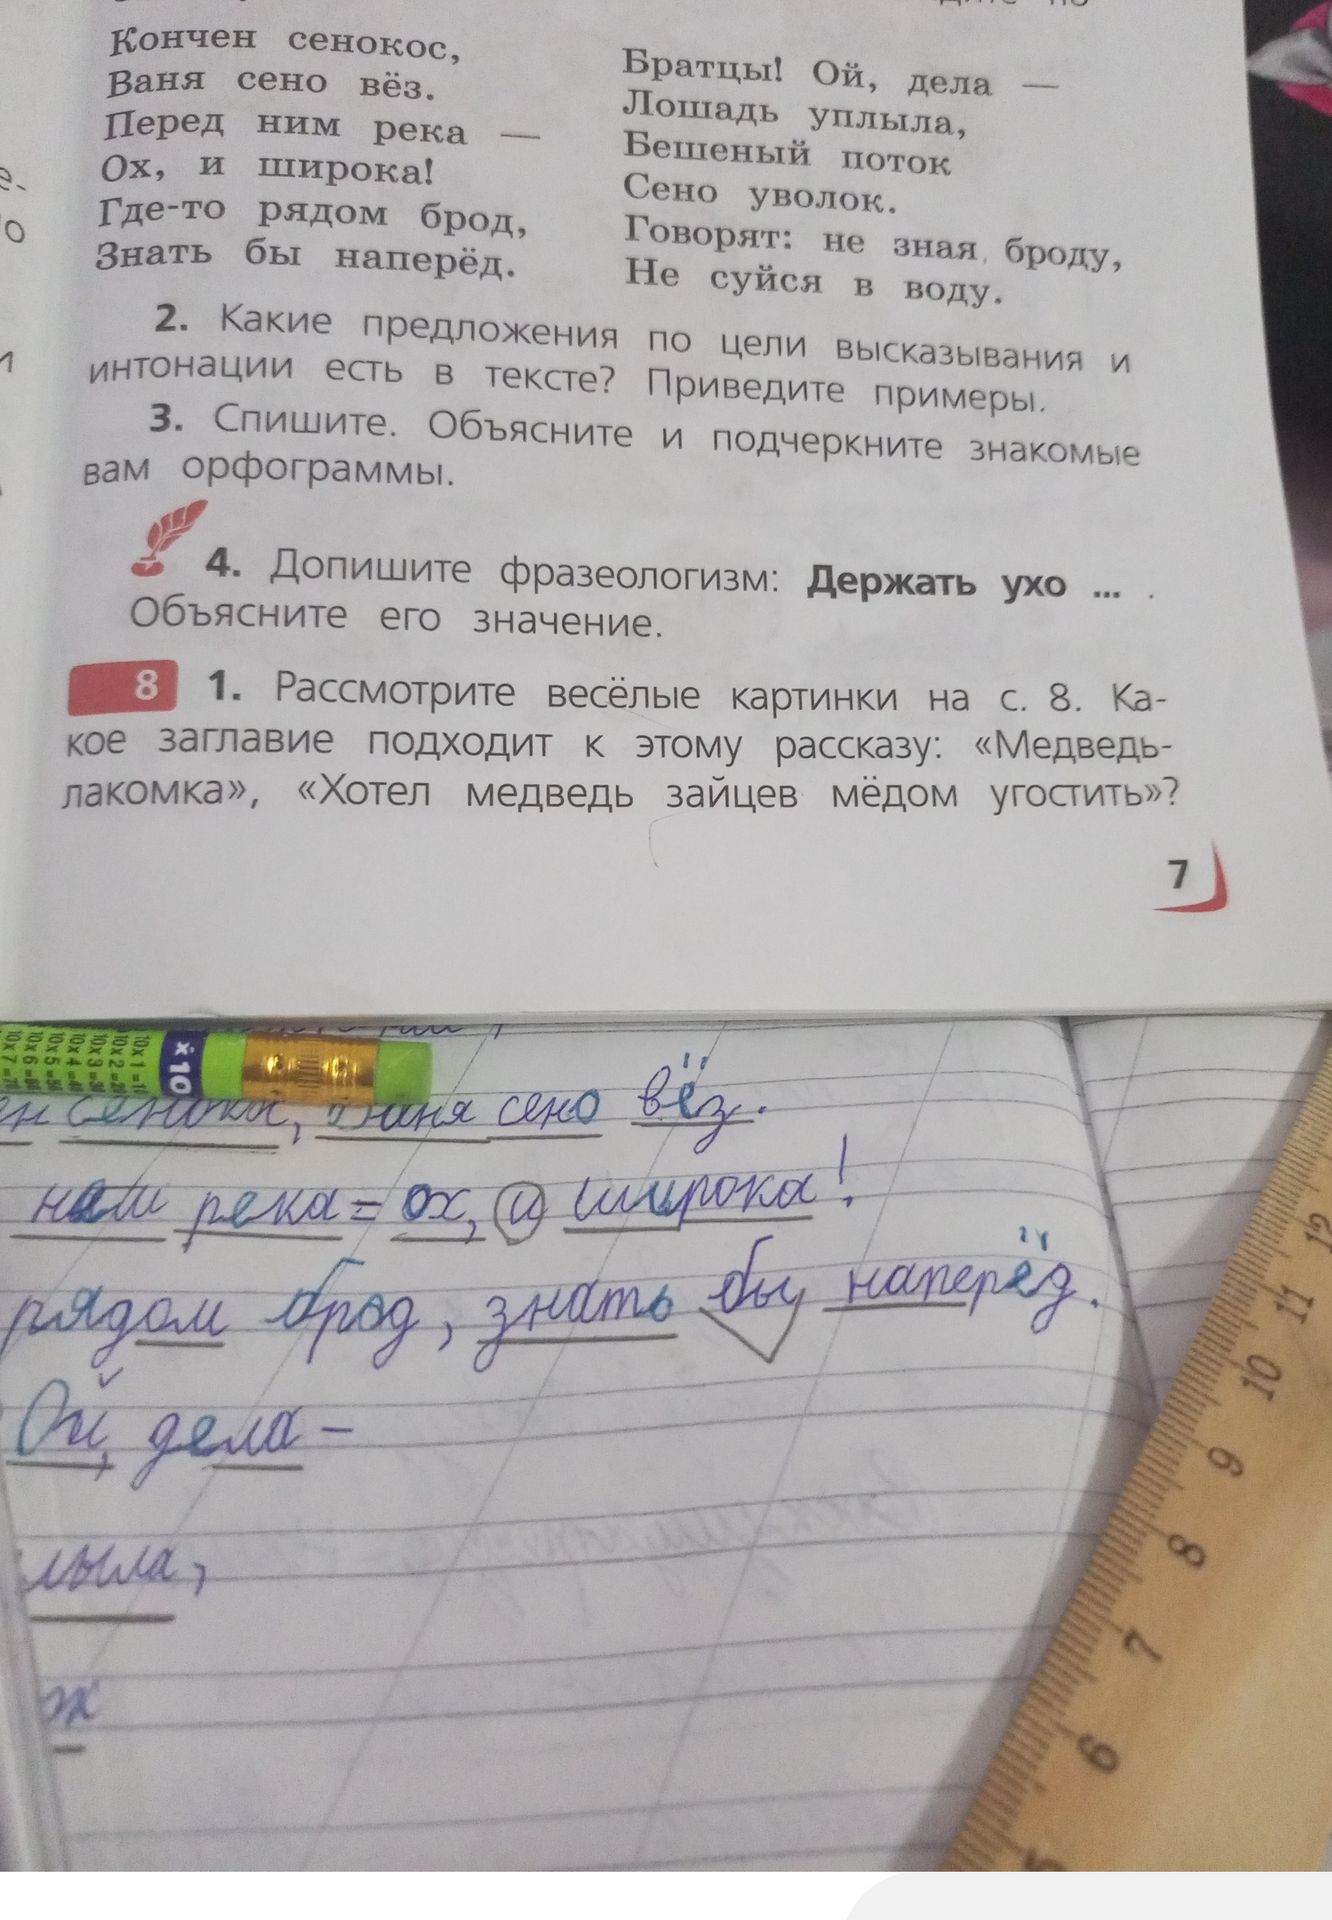 Кончен сенокос,
Ваня сено вёз.
Перед ним река —
Ох, и широка!
Где-то рядом брод,
Знать бы наперёд.
Братцы! Ой, дела —
Лошадь уплыла,
Бешеный поток
Сено уволок.
Говорят: не зная броду,
Не суйся в воду.
2. Какие предложения по цели высказывания и
интонации есть в тексте? Приведите примеры.
3. Спишите. Объясните и подчеркните знакомые
вам орфограммы.
4. Допишите фразеологизм: Держать ухо ... .
Объясните его значение.
8 1. Рассмотрите весёлые картинки на с. 8. Ка-
кое заглавие подходит к этому рассказу: «Медведь-
лакомка», «Хотел медведь зайцев мёдом угостить»?
7
x10
ен сенокос, Ваня сено вёз.
река = ох, и широка!
рядом брод, знать бы наперёд.
Ой, дела –
лыла,
ок
12
11
10
9
8
7
6
5